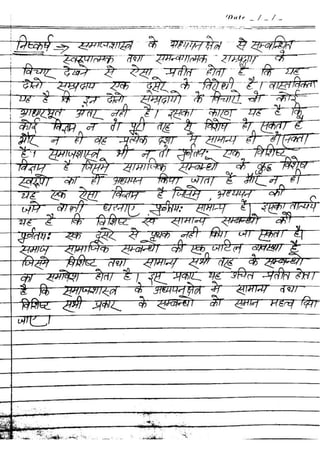 Date _/_/_
निष्कर्ष ⇒ समाजशास्त्र के अध्ययन क्षेत्र से सम्बन्धित
स्वरूपात्मक तथा समन्वयात्मक सम्प्रदाय के
विचार देखने से ऐसा प्रतीत होता है कि यह
दोनो सम्प्रदाय एक दूसरे के विरोधी है। वास्तविकता
यह है कि इन दोनो सम्प्रदायो के विचारो का कोई
आधारभूत अंतर नही है। इसका कारण यह है कि
कोई विज्ञान न तो पूरी तरह से विशेष हो सकता है
और न ही वह प्रत्येक दशा मे सामान्य हो ही सकता
है। समाजशास्त्र भी न तो पूर्णतः एक विशिष्ट
विज्ञान है जिसमे सामाजिक सम्बन्धो के कुछ विशेष
स्वरूपो का ही अध्ययन किया जाता है और न ही
यह एक ऐसा विज्ञान है जिसमे अध्ययन की
जाने वाली घटनाए पूर्णतः सामान्य है। इसका तात्पर्य
यह है कि विशिष्ट एवं सामान्य सम्बन्धो को
पूर्णतः एक दूसरे से पृथक नही किया जा सकता है।
समाज सामाजिक सम्बन्धो की एक जटिल व्यवस्था है
जिसमे विशिष्ट तथा सामान्य सभी तरह के सम्बन्धो
का समावेश होता है। इस प्रकार यह उचित प्रतीत होता
है कि समाजशास्त्र के अध्ययन क्षेत्र मे सामान्य तथा
विशिष्ट सभी प्रकार के सम्बन्धो को समान महत्व दिया
जाए।